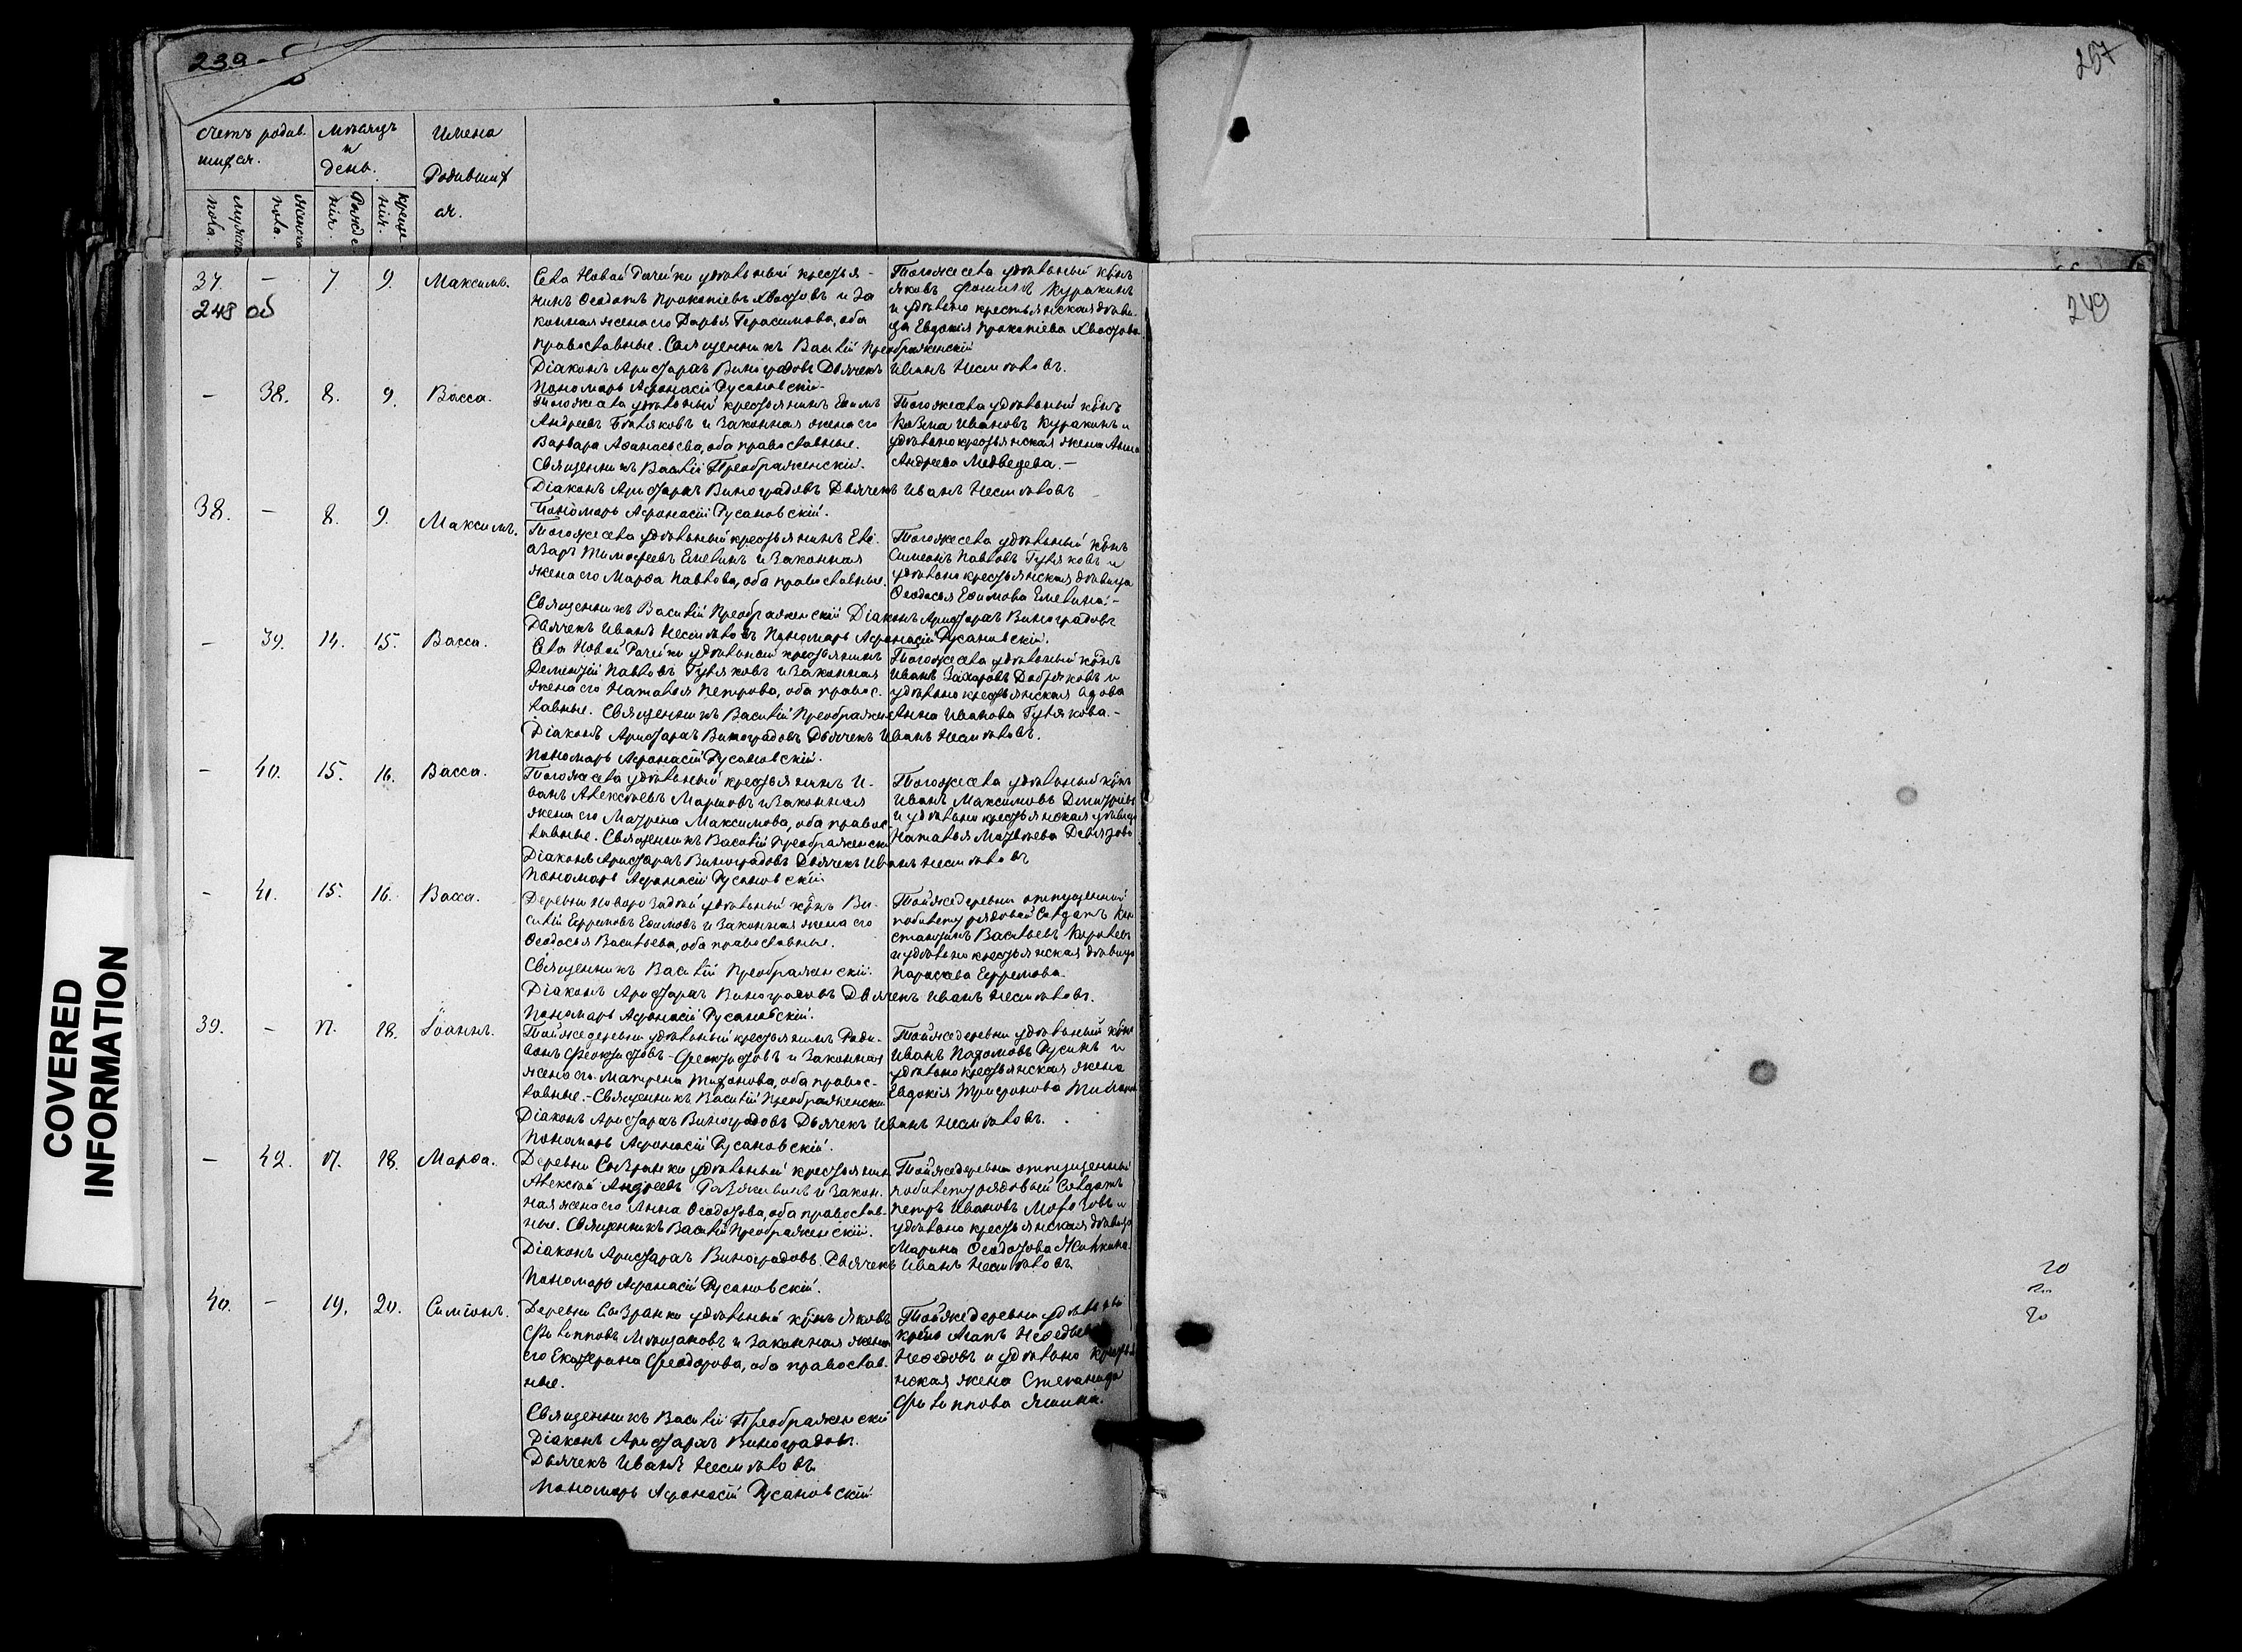 239
257
Счетъ родив-
шихся.
Мѣсяцъ
и
день.
Имена
Родивших
ся.
мужеска
пола.
женска
пола.
Рожде
нія.
креще
нія.
37. — 7 9. Максимъ.
248 об
249
Села Новой Рачейки удѣльный крестья-
нинъ Ѳеодотъ Прокопіевъ Хвостовъ и за
конная жена его Дарья Герасимова, оба
православные. Священникъ Василій Преображенскій
Діаконъ Аристархъ Виноградовъ Дьячекъ Иванъ Несмѣловъ.
Пономарь Афонасій Русановскій.
Тогоже села удѣльный крнъ
Яковъ Фоминъ Куракинъ
и удѣльно крестьянская дѣви-
ца Евдокія Прокопіева Хвостова.
— 38. 8. 9. Васса.
Тогоже села удѣльный крестьянинъ Ефимъ
Андреевъ Бѣляковъ и законная жена его
Варвара Аѳанасьева, оба православные.
Священникъ Василій Преображенскій.
Діаконъ Аристархъ Виноградовъ Дьячекъ Иванъ Несмѣловъ
Пономарь Афонасій Русановскій.
Тогоже села удѣльный крнъ
Козма Ивановъ Куракинъ и
удѣльно крестьянская жена Анна
Андреева Медведева.—
38. — 8. 9. Максимъ.
Тогоже села удѣльный крестьянинъ Еле-
азаръ Тимофеевъ Емелинъ и законная
жена его Марѳа Павлова, оба православные.
Священникъ Василій Преображенскій Діаконъ Аристархъ Виноградовъ
Дьячекъ Иванъ Несмѣловъ Пономарь Афонасій Русановскій.
Тогоже села удѣльный крнъ
Симеонъ Павловъ Гуляковъ и
удѣльно крестьянская дѣвица
Ѳеодосья Ефимова Емелина.—
— 39. 14. 15. Васса.
Села Новой Рачейки удѣльный крестьянинъ
Дементій Павловъ Гуляковъ и законная
жена его Наталья Петрова, оба правос-
лавные. Священникъ Василій Преображен
Діаконъ Аристархъ Виноградовъ Дьячекъ Иванъ Несмѣловъ.
Пономарь Афонасій Русановскій.
Тогоже села удѣльный крнъ
Иванъ Захаровъ Добряковъ и
удѣльно крестьянская вдова
Анна Иванова Гулякова.—
— 40. 15. 16. Васса.
Тогоже села удѣльный крестьянинъ И-
ванъ Алексѣевъ Маршовъ и законная
жена его Матрена Максимова, оба правос-
лавные. Священникъ Василій Преображенскій
Діаконъ Аристархъ Виноградовъ Дьячекъ Иванъ Несмѣловъ
Пономарь Афонасій Русановскій.
Тогоже села удѣльный крнъ
Иванъ Максимовъ Дмитріевъ
и удѣльно крестьянская дѣвица
Наталья Матвѣева
— 41. 15. 16. Васса.
Деревни удѣльный крнъ Ва-
силій Ефремовъ Ефимовъ и законная жена его
Ѳеодосья Васильева, оба православные.
Священникъ Василій Преображенскій.
Діаконъ Аристархъ Виноградовъ Дьячекъ Иванъ Несмѣловъ.
Пономарь Афонасій Русановскій.
Тойже деревни отпущенный
побилету рядовой Солдатъ Кон
стантинъ Васильевъ Королевъ
и удѣльно крестьянская дѣвица
Параскева Ефремова.
39. — 17. 18. Іоаннъ.
Тойже деревни удѣльный крестьянинъ Роди-
вонъ Феоктистовъ Феоктистовъ и законная
жена его Матрена Тихонова, оба правос-
лавные.—Священникъ Василій Преображенскій
Діаконъ Аристархъ Виноградовъ Дьячекъ Иванъ Несмѣловъ.
Пономарь Афонасій Русановскій.
Тойже деревни удѣльный крнъ
Иванъ Пахомовъ Русинъ и
удѣльно крестьянская жена
Евдокія Трифонова
— 42. 17. 18. Марѳа.
Деревни Сызранки удѣльный крестьянинъ
Алексѣй Андреевъ и закон-
ная жена его Анна Ѳеодотова, оба православ-
ные. Священникъ Василій Преображенскій.
Діаконъ Аристархъ Виноградовъ. Дьячекъ Иванъ Несмѣловъ
Пономарь Афонасій Русановскій.
Тойже деревни отпущенный
побилету рядовый Солдатъ
Петръ Ивановъ Морозовъ и
удѣльно крестьянская дѣвица
Марина Ѳеодотова
40. — 19. 20. Симеонъ.
Деревни Сызранки удѣльный крнъ Яковъ
Филипповъ и законная жена
его Екатерина Феодорова, оба православ-
ные.
Священникъ Василій Преображенскій
Діаконъ Аристархъ Виноградовъ.
Дьячекъ Иванъ Несмѣловъ.
Пономарь Афонасій Русановскій
Тойже деревни удѣльный
крнъ Агапъ
Неѳедовъ и удѣльно крестья
нская жена Степанида
Филиппова Яшина.
20
20
COVERED
INFORMATION